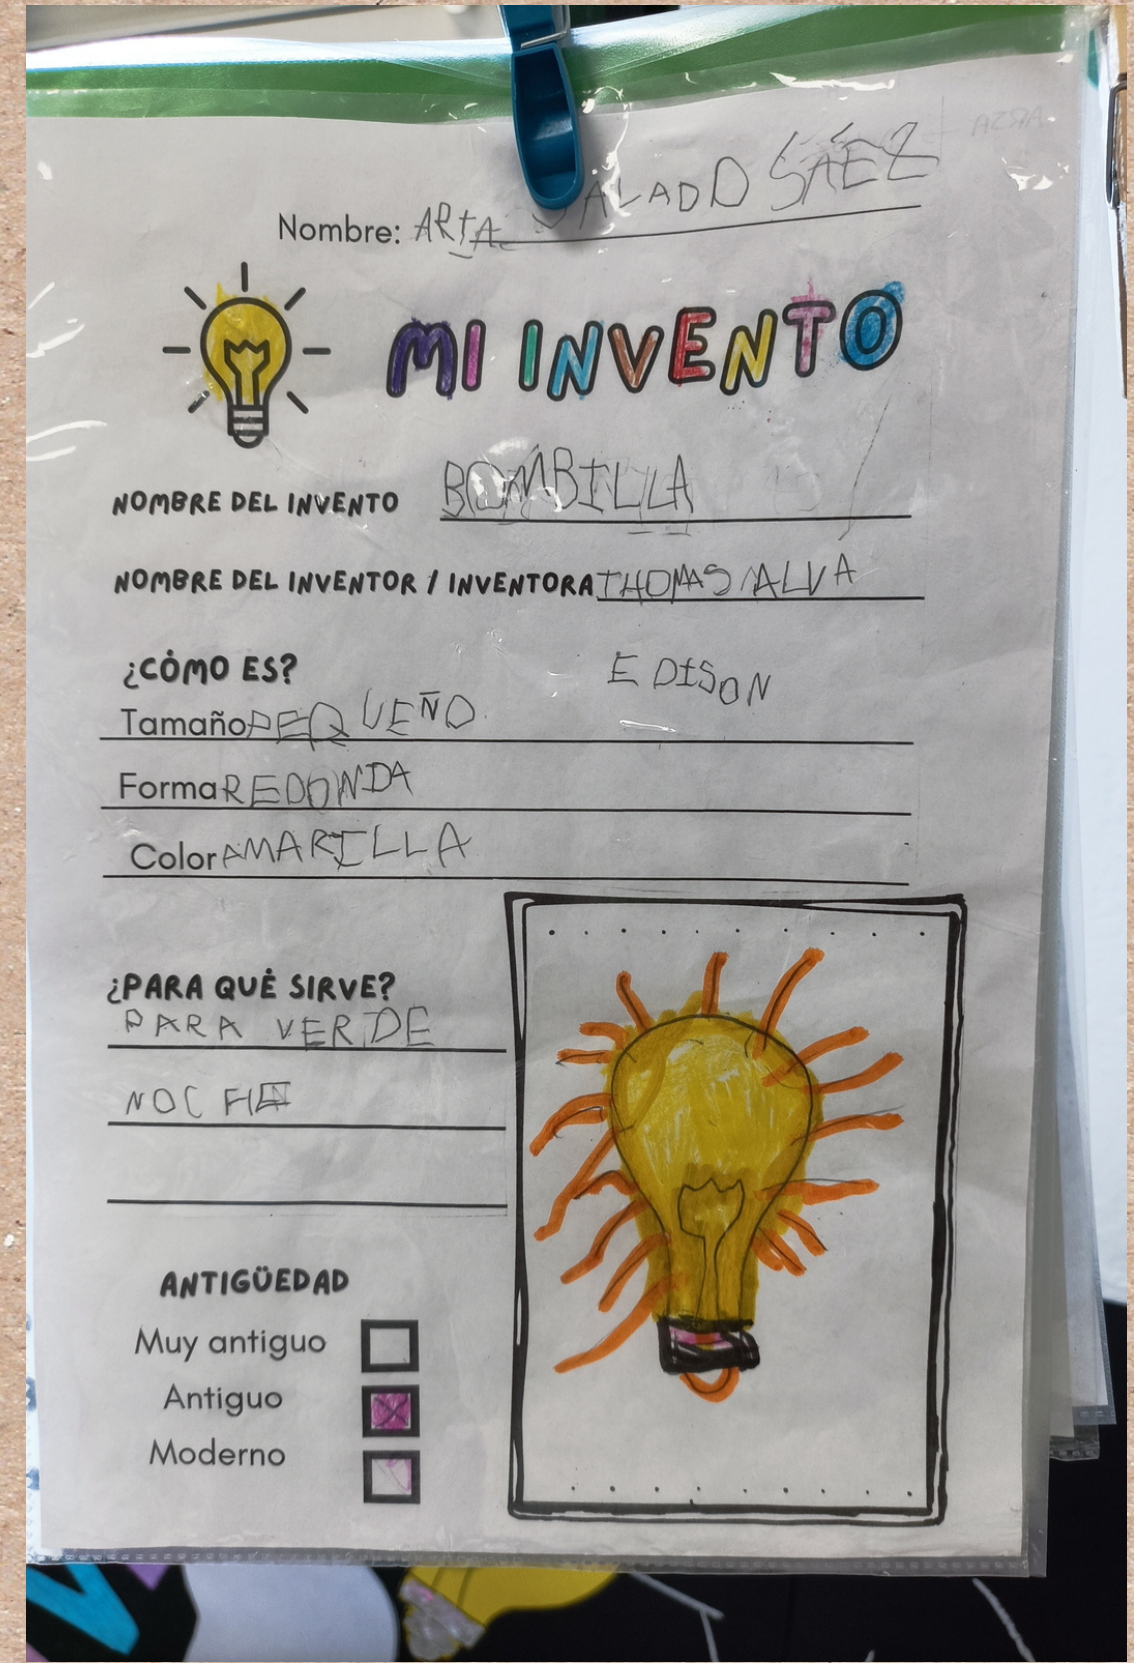 Nombre: ARTA SALADO SÁEZ
MI INVENTO
NOMBRE DEL INVENTO BOMBILLA
NOMBRE DEL INVENTOR / INVENTORA THOMAS ALVA
EDISON
¿CÓMO ES?
Tamaño PEQUEÑO
Forma REDONDA
Color AMARILLA
¿PARA QUÉ SIRVE?
PARA VER DE
NOCHE
ANTIGÜEDAD
Muy antiguo
Antiguo
Moderno